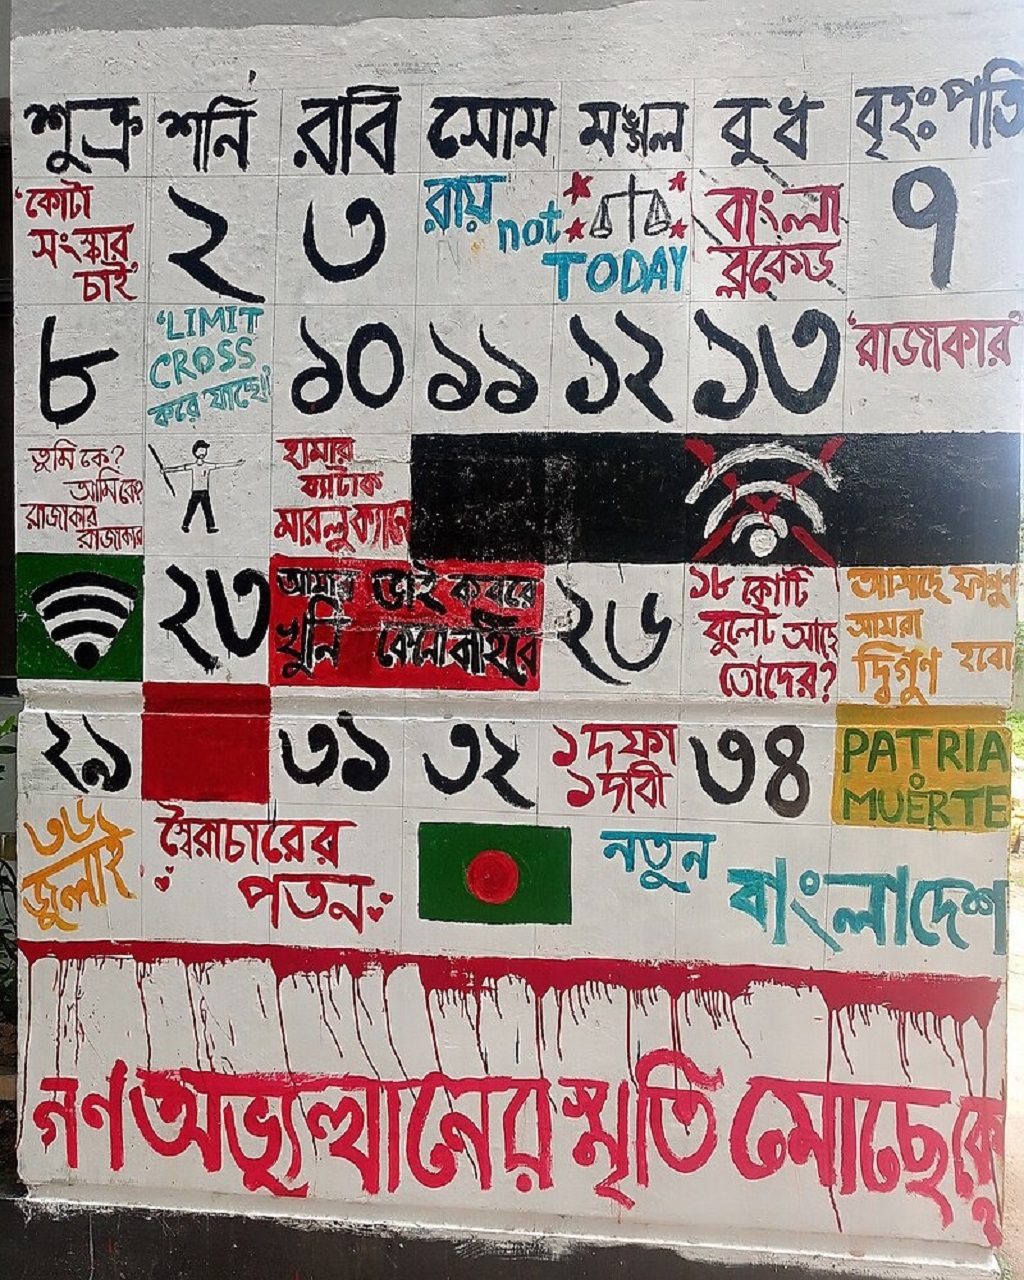 শুক্র শনি রবি সোম মঙ্গল বুধ বৃহঃপতি
'কোটা
সংস্কার
চাই'
২
৩
রায়
not
TODAY
বাংলা
ব্লকেড
৭
৮
'LIMIT
CROSS
করে যাচ্ছে'
১০
১১
১২
১৩
'রাজাকার'
তুমি কে?
আমি কে?
রাজাকার
রাজাকার
হামার
ব্যাটাক
মারলু ক্যান
২৩
আমার ভাই কবরে
খুনি কেনো বাহিরে
২৬
১৮ কোটি
বুলেট আছে
তোদের?
আসছে ফাগুন
আমরা
দ্বিগুণ হবো
২৯
৩১
৩২
১ দফা
১ দাবী
৩৪
PATRIA
O
MUERTE
৩৬
জুলাই
স্বৈরাচারের
পতন
নতুন
বাংলাদেশ
গণঅভ্যুত্থানের স্মৃতি মোছে কে